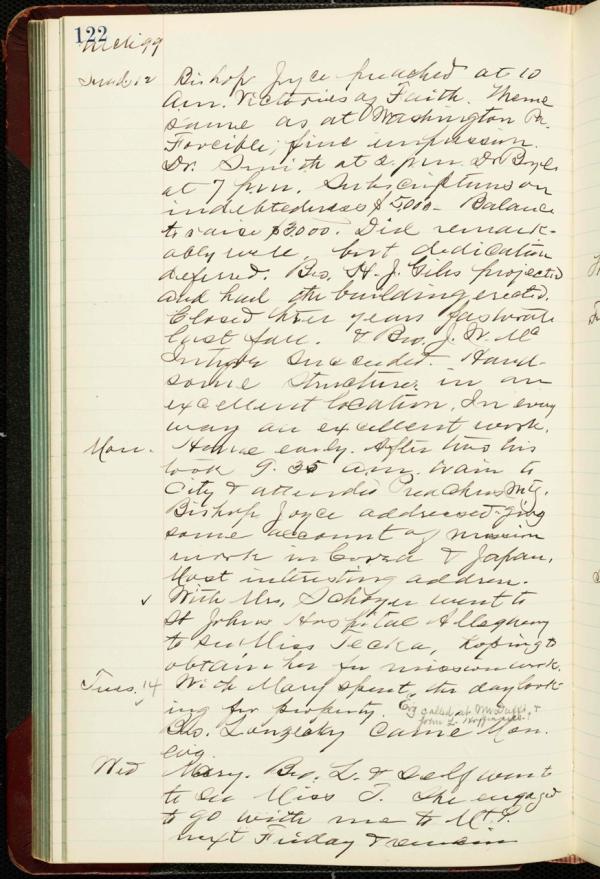 122
Mch 99
Sund. 12 Bishop Joyce preached at 10
a.m. Victories of Faith. Theme
same as at Washington Pa.
Forcible; fine impression.
Dr. Smith at 3. p.m. Dr Boyle
at 7 p.m. Subscriptions on
indebtedness $5000 - Balance
to raise $3000. Did remark-
ably well, but dedication
deferred. Bro. H. J. Giles projected
and had the building erected.
Closed his years pastorate
last fall. & Bro. J. W. Mc
Intyre succeeded. Hand-
some structure in an
excellent location. In every
way an excellent work.
Mon. Home early. After this
took 9.35 a.m. train to
City & attended Preachers Mtg.
Bishop Joyce addressed - giving
some account of mission
work in Corea & Japan.
Most interesting address.
✓ With Mrs. Schoyer went to
St Johns Hospital Allegheny
to see Miss Tecka, hoping to
obtain her for mission work.
Tues. 14 With Mary spent the day look-
ing for property. Evg called at &
John L.
Bro. Lonzesky came Mon.
evg.
Wed Mary. Bro. L. & Self went
to see Miss T. She engaged
to go with me to Mt. P.
next Friday & remain